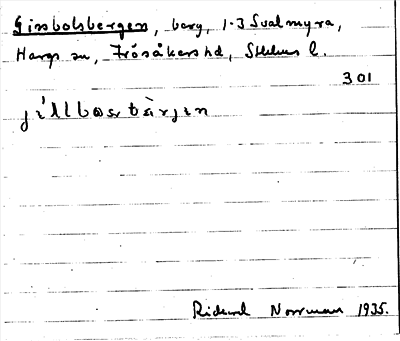 Gisslbolsbergen, berg, 1-3 Svalmyra,
Hargs sn, Frösåkers hd, Sthlms l.
301
Rickard Norrman 1935.